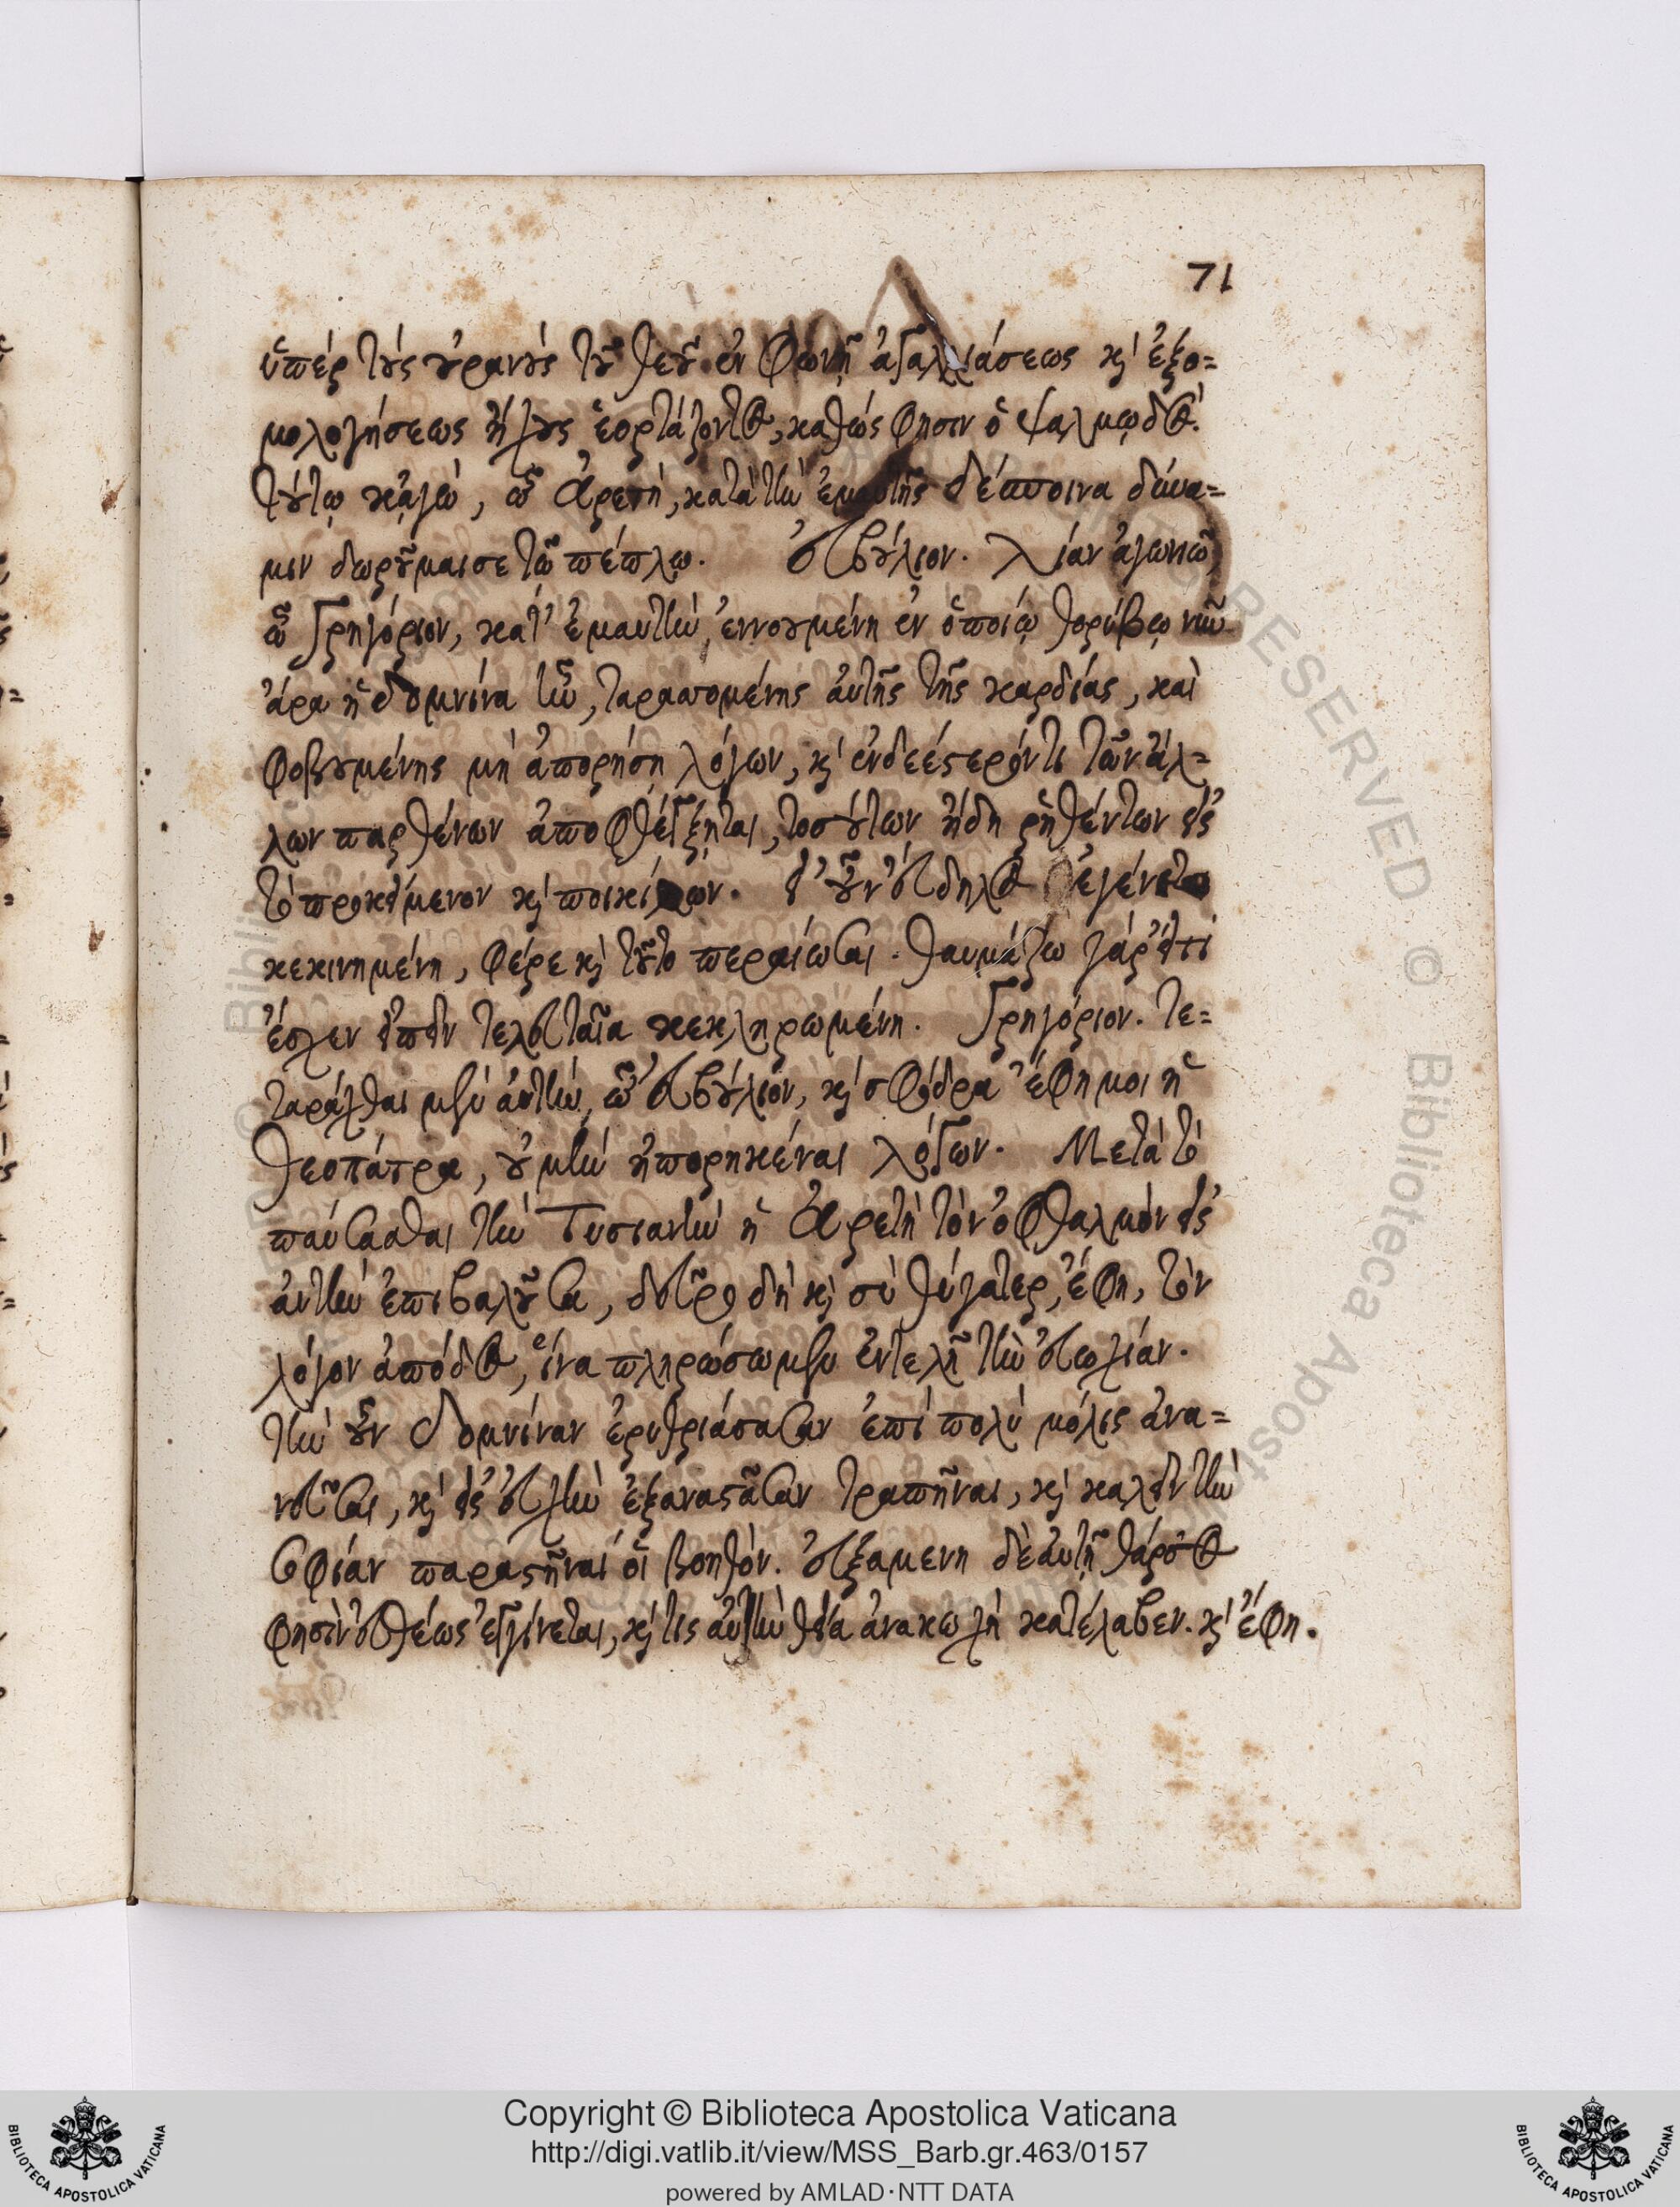 71
ὑπὲρ τοὺς οὐρανοὺς τοῦ θεοῦ ἐν φωνῇ ἀγαλλιάσεως κ̀ ἐξο=
μολογήσεως ἤχους ἑορτάζοντος, καθώς φησιν ὁ ψαλμῳδός.
τούτῳ κἀγὼ, ὦ Ἀρετὴ, κατὰ τὴν ἐμαυτῆς δέσποινα δύνα=
μιν δωροῦμαι σε τῷ πέπλῳ. Εὐβούλιον. Λίαν ἀγωνιῶ
ὦ Γρηγόριον, κατ' ἐμαυτὴν ἐννοουμένη ἐν ὁποίῳ θορύβῳ νῦν
ἄρα ἡ Δομνίνα ἦν, ταραττομένης αὐτῆς τῆς καρδίας, καὶ
φοβουμένης μὴ ἀπορήσῃ λόγων, κ̀ ἐνδεέστερόν τι τῶν ἄλ=
λων παρθένων ἀποφθέγξηται, τοσούτων ἤδη ῥηθέντων εἰς
τὸ προκείμενον κ̀ ποικίλων. εἰ οὖν εὔδηλος ἐγένετο
κεκινημένη, φέρε κ̀ τοῦτο περαίωσαι. θαυμάζω γὰρ εἴ τι
ἔσχεν εἰπεῖν τελευταῖα κεκληρωμένη. Γρηγόριον. Τε=
ταράχθαι μὲν αὐτὴν, ὦ Εὐβούλιον, κ̀ σφόδρα ἔφη μοι ἡ
Θεοπάτρα, οὐ μὴν ἠπορηκέναι λόγων. Μετὰ τὸ
παύσασθαι τὴν Τυσιανὴν ἡ Ἀρετὴ τὸν ὀφθαλμὸν εἰς
αὐτὴν ἐπιβαλοῦσα, δεῦρο δὴ κ̀ σὺ θύγατερ, ἔφη, τὸν
λόγον ἀπόδος, ἵνα πληρώσωμεν ἐντελῆ τὴν εὐωχίαν.
τὴν οὖν Δομνίναν ἐρυθριάσασαν ἐπὶ πολὺ μόλις ἀνα=
νεῦσαι, κ̀ εἰς εὐχὴν ἐξαναστᾶσαν τραπῆναι, κ̀ καλεῖν τὴν
σοφίαν παραστῆναί οἱ βοηθόν. εὐξαμένη δὲ αὐτῇ θάρσος
φησὶν εὐθέως ἐγγίνεται, κ̀ τις αὐτὴν θεία ἀνακωχὴ κατέλαβεν. κ̀ ἔφη.
© Biblioteca Apostolica Vaticana
RESERVED © Biblioteca Apost
Copyright © Biblioteca Apostolica Vaticana
http://digi.vatlib.it/view/MSS_Barb.gr.463/0157
powered by AMLAD·NTT DATA
BIBLIOTECA APOSTOLICA VATICANA
BIBLIOTECA APOSTOLICA VATICANA